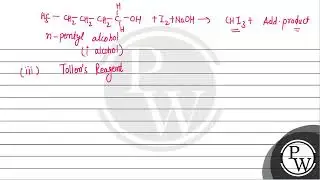 H
H₃C - CH₂ CH₂ CH₂ C - OH + I₂ + NaOH → CHI₃ + Add. product
H
n-pentyl alcohol
(1° alcohol)
(iii) Tollen's Reagent
P
W
P
W